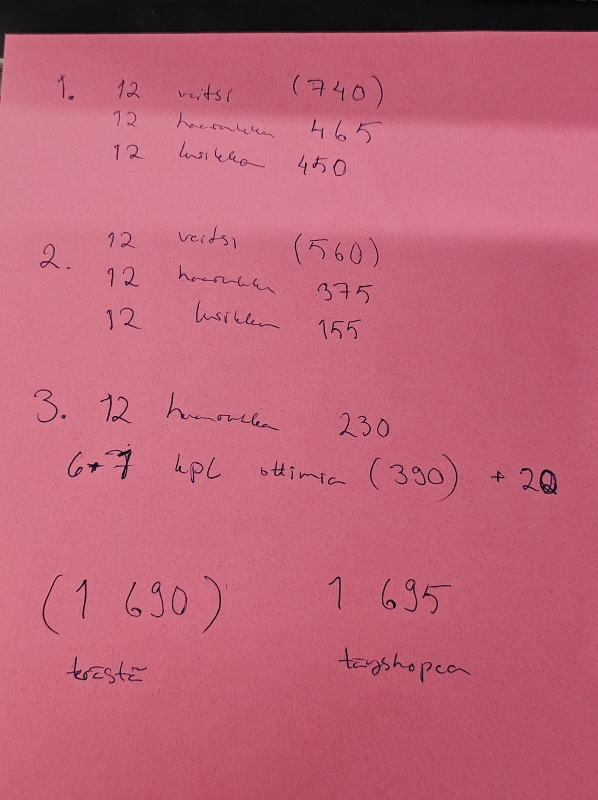 1. 12 veitsi (740)
12 haarukka 465
12 lusikka 450
2. 12 veitsi (560)
12 haarukka 375
12 lusikka 155
3. 12 haarukka 230
6+7 kpl ottimia (390) + 20
(1 690) 1 695
terästä täyshopea